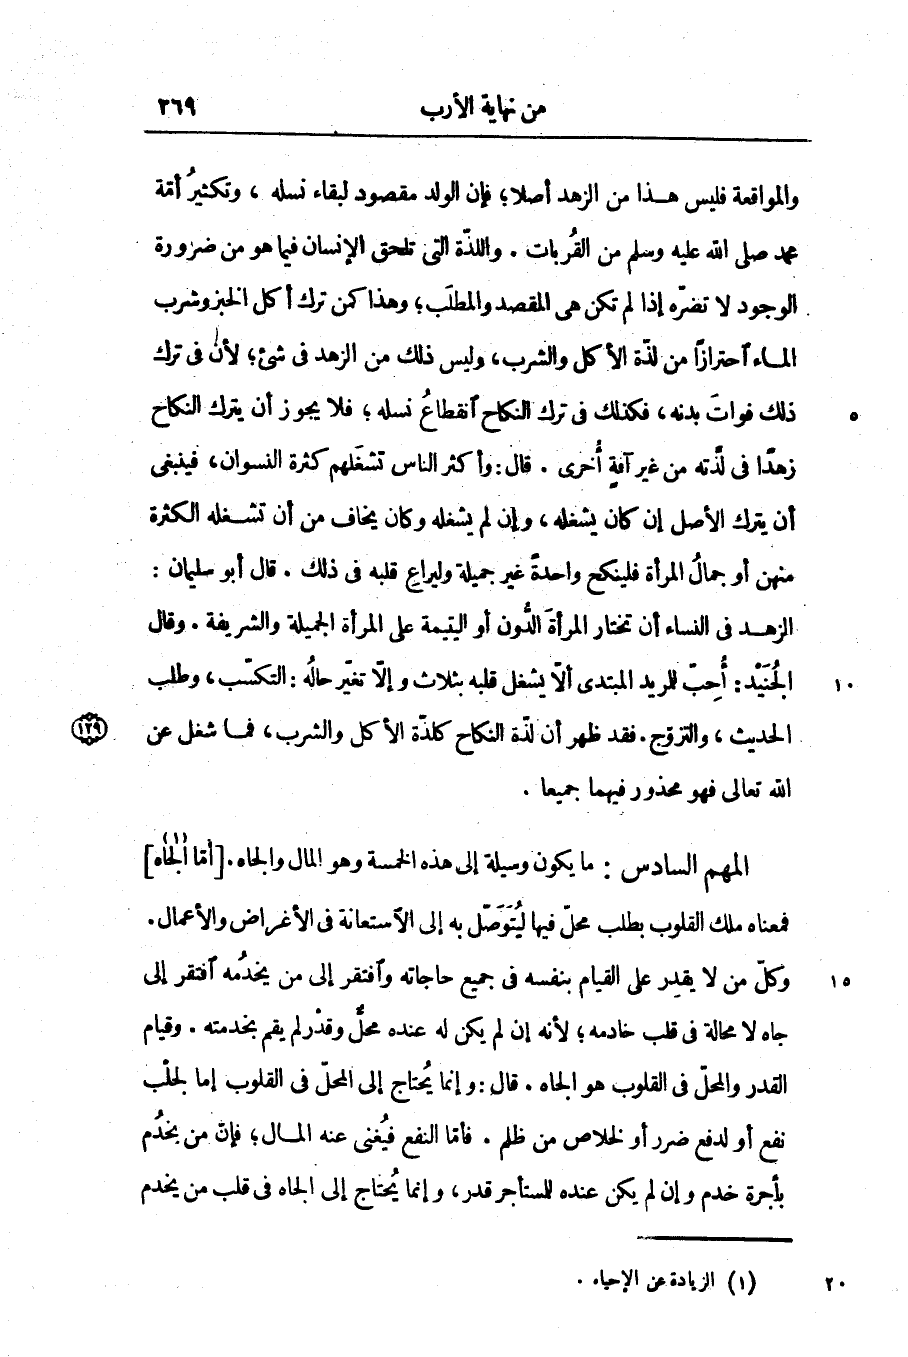 من نهاية الأرب ٢٦٩
والمواقعة فليس هــذا من الزهد أصلا؛ فإن الولد مقصود لبقاء نسله ، وتكثيرُ أمّة
محمد صلى الله عليه وسلم من القُربات . واللذّة التى تلحق الإنسان فيما هو من ضرورة
الوجود لا تضرّه إذا لم تكن هى المقصد والمطلَب؛ وهذا كمن ترك أكل الخبز وشرب
المـاء ٱحترازًا من لذّة الأكل والشرب، وليس ذلك من الزهد فى شئ؛ لأن فى ترك
ذلك فواتَ بدنه ، فكذلك فى ترك النكاح ٱنقطاعُ نسله ؛ فلا يجوز أن يترك النكاح ٥
زهدًا فى لذّته من غير آفةٍ أُخرى . قال : وأكثر الناس تشغَلهم كثرة النسوان، فينبغى
أن يترك الأصل إن كان يشغله ، وإن لم يشغله وكان يخاف من أن تشــغله الكثرة
منهن أو جمالُ المرأة فلينكح واحدةً غير جميلة وليراعِ قلبه فى ذلك . قال أبو سليمان :
الزهــد فى النساء أن تختار المرأةَ الدُّون أو اليتيمة على المرأة الجميلة والشريفة . وقال
الجُنَيْد : أُحِبّ للريد المبتدى ألّا يشغل قلبه بثلاث وإلّا تغيّر حالُه : التكسّب ، وطلب ١٠
الحديث ، والتزوّج . فقد ظهر أن لذّة النكاح كلذّة الأكل والشرب، فمــا شغل عن ١٢٩
الله تعالى فهو محذور فيهما جميعا .
المهم السادس : ما يكون وسيلة إلى هذه الخمسة وهو المال والجاه . [أمّا الجاه](١)
فمعناه ملك القلوب بطلب محلّ فيها ليُتَوَصّل به إلى الٱستعانة فى الأغراض والأعمال .
وكلّ من لا يقدِر على القيام بنفسه فى جميع حاجاته وٱفتقر إلى من يخدُمه ٱفتقر إلى ١٥
جاه لا محالة فى قلب خادمه؛ لأنه إن لم يكن له عنده محلٌّ وقدْر لم يقم بخدمته . وقيام
القدر والمحلّ فى القلوب هو الجاه . قال : وإنما يُحتاج إلى المحلّ فى القلوب إما لجلْب
نفع أو لدفع ضرر أو لخلاص من ظلم . فأمّا النفع فيُغنى عنه المــال؛ فإنّ من يخدُم
بأجرة خدم وإن لم يكن عنده للستأجر قدر، وإنما يُحتاج إلى الجاه فى قلب من يخدم
(١) الزيادة عن الإحياء . ٢٠